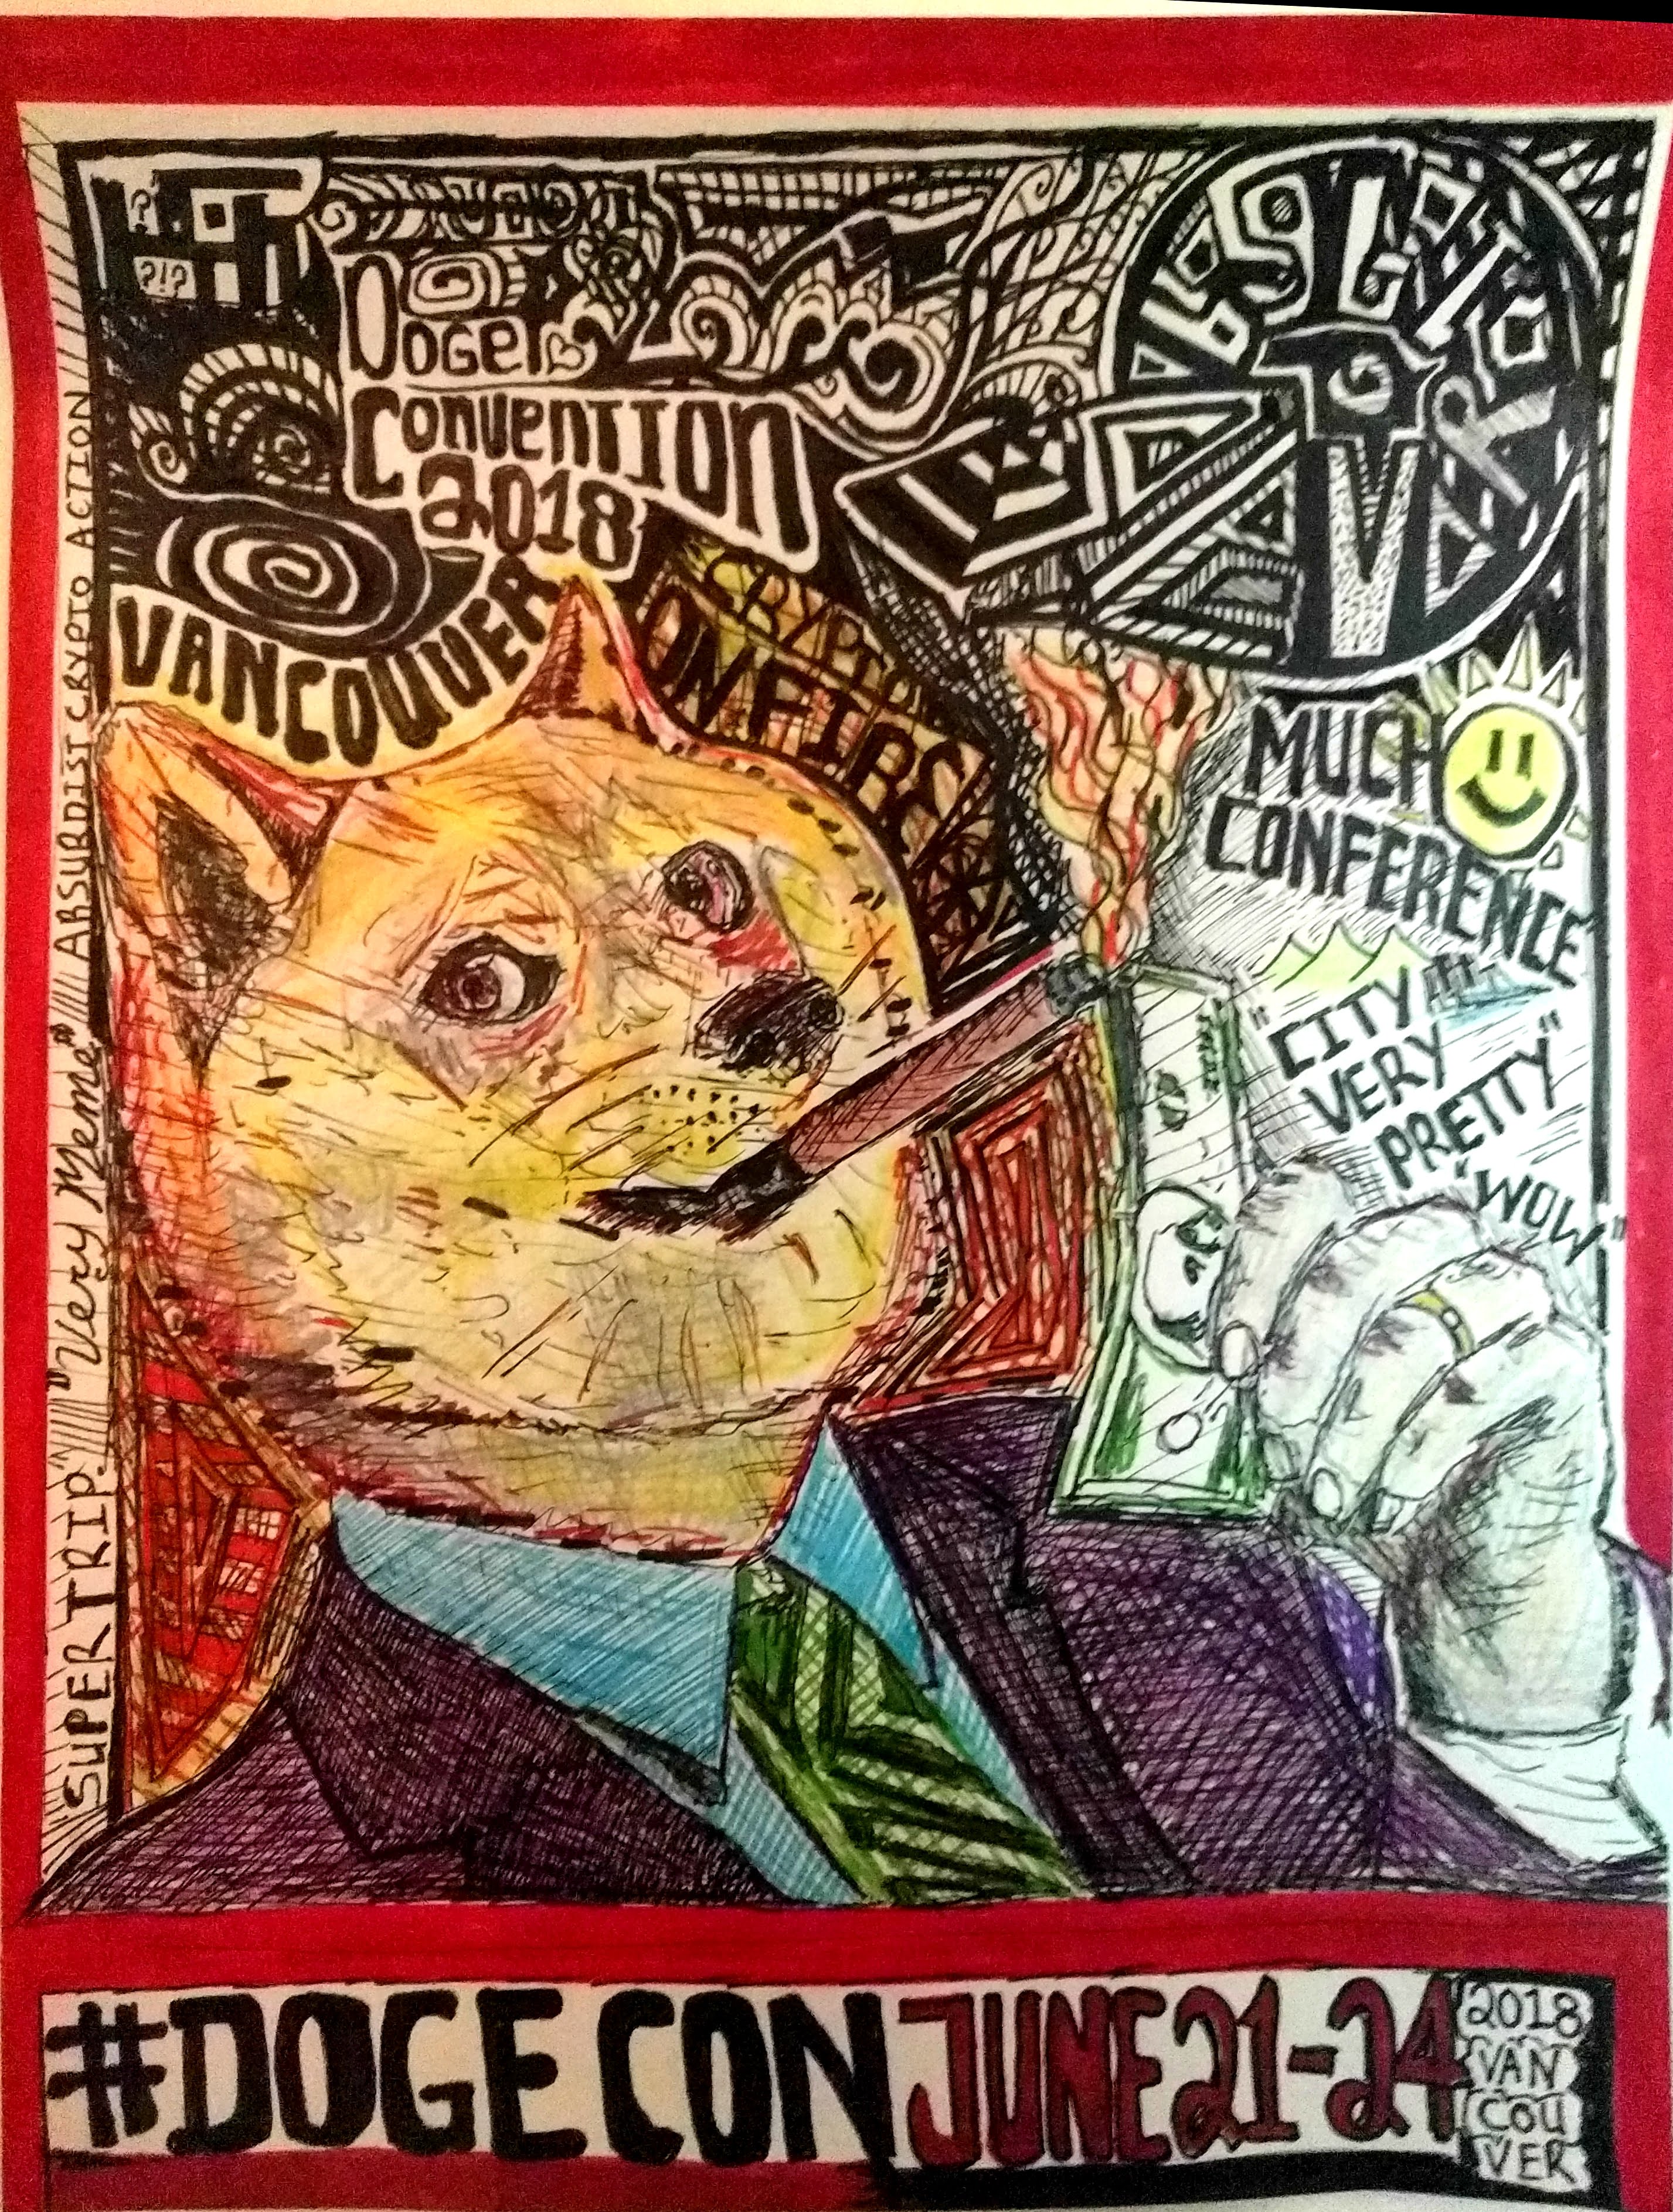 ?
?!?
DOGE
CONVENTION
2018
VANCOUVER
CRYPTO
ON FIRE
MUCH
CONFERENCE
"CITY
VERY
PRETTY"
"WOW"
SUPER TRIP. "Very Meme" ABSURDIST CRYPTO ACTION
#DOGECON JUNE 21-24
2018
VAN
COU
VER